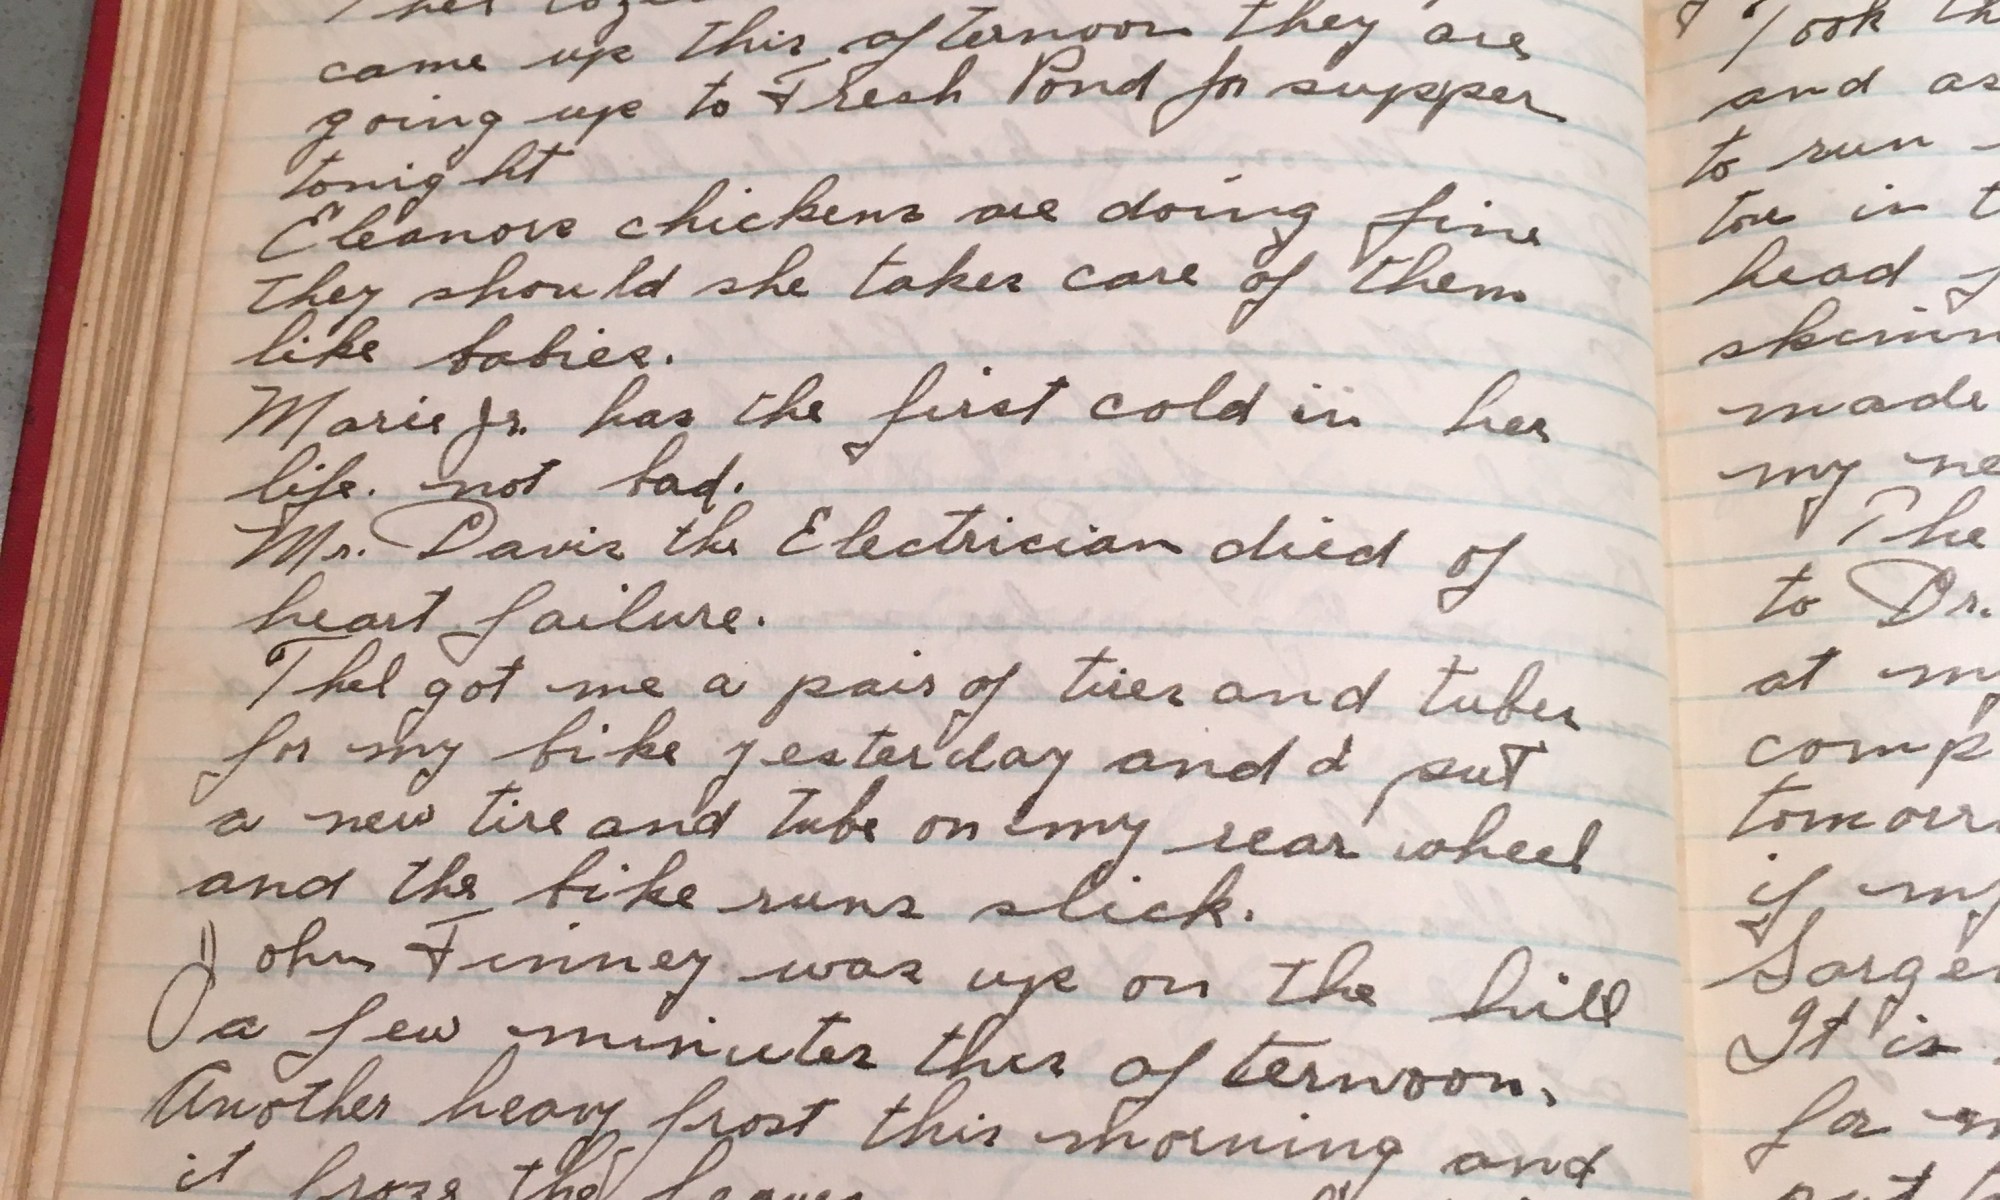 came up this afternoon they are
going up to Fresh Pond for supper
tonight
Eleanors chickens are doing fine
they should she takes care of them
like babies.
Marie Jr. has the first cold in her
life. not bad.
Mr. Davis the Electrician died of
heart failure.
Thel got me a pair of tires and tubes
for my bike yesterday and I put
a new tire and tube on my rear wheel
and the bike runs slick.
John Finney was up on the hill
a few minutes this afternoon.
Another heavy frost this morning and
it froze the
Took th
and as
to run
in t
head f
made
my ne
The
to Dr.
at my
comp
tomorr
if my
Sargen
It is
for m